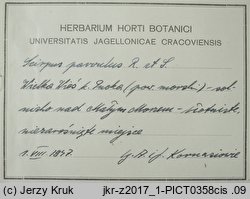 HERBARIUM HORTI BOTANICI
UNIVERSITATIS JAGELLONICAE CRACOVIENSIS
Scirpus parvulus R. et S.
Wielka Wieś k. Pucka (pow. morski) - sol-
nisko nad Małym Morzem -
niezarośnięte miejsce
1. VIII 1947.
(c) Jerzy Kruk jkr-z2017_1-PICT0358cis .09